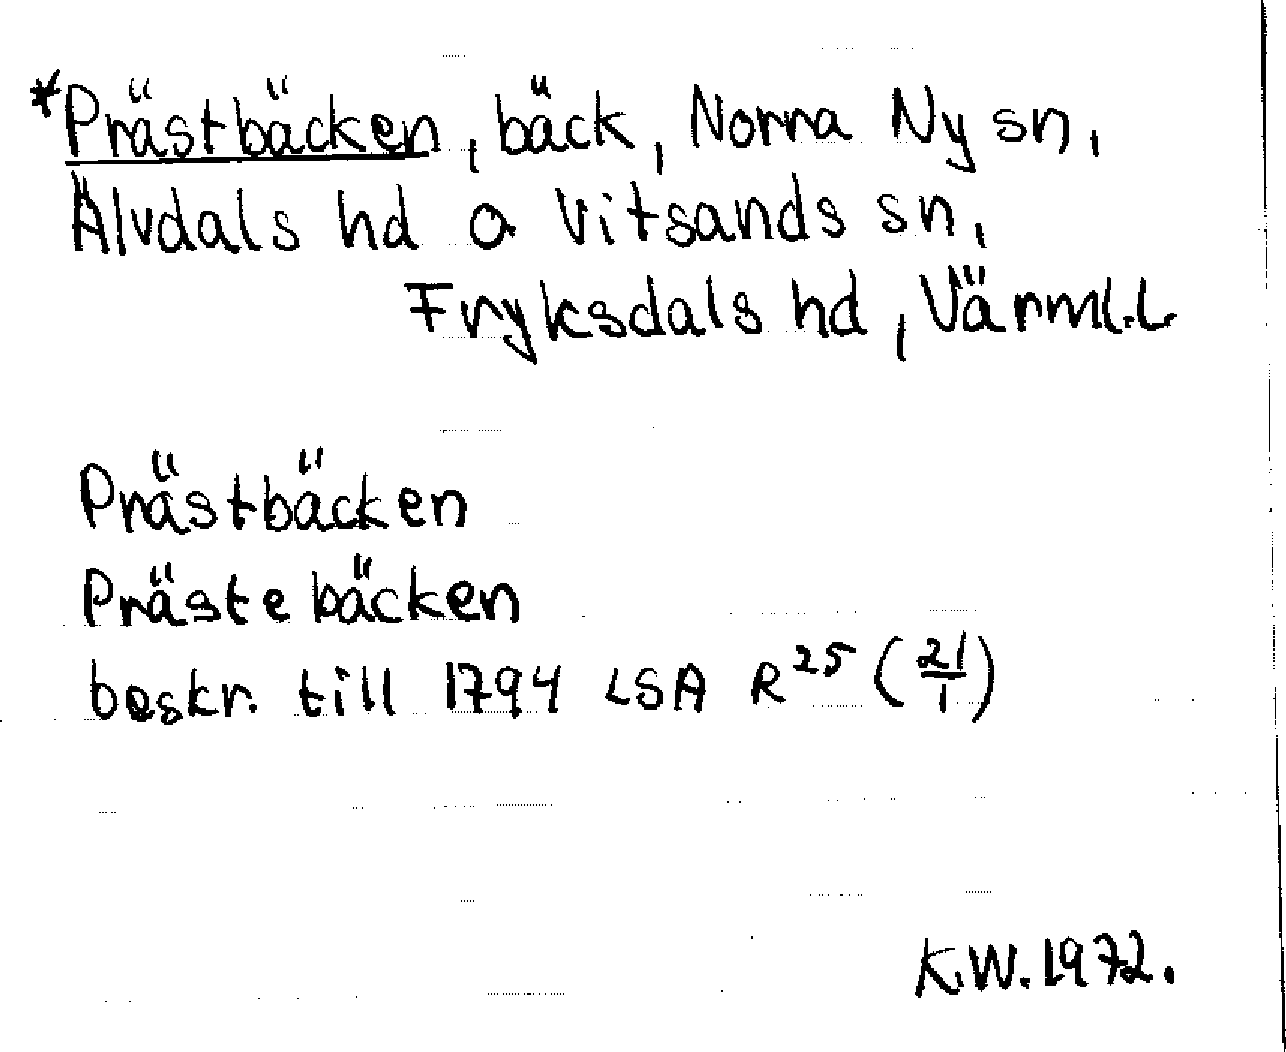 *Prästbäcken, bäck, Norra Ny sn,
Älvdals hd o Vitsands sn,
Fryksdals hd, Värml.L
Prästbäcken
Prästebäcken
beskr. till 1794 LSA R²⁵ (21/1)
K.W.1972.